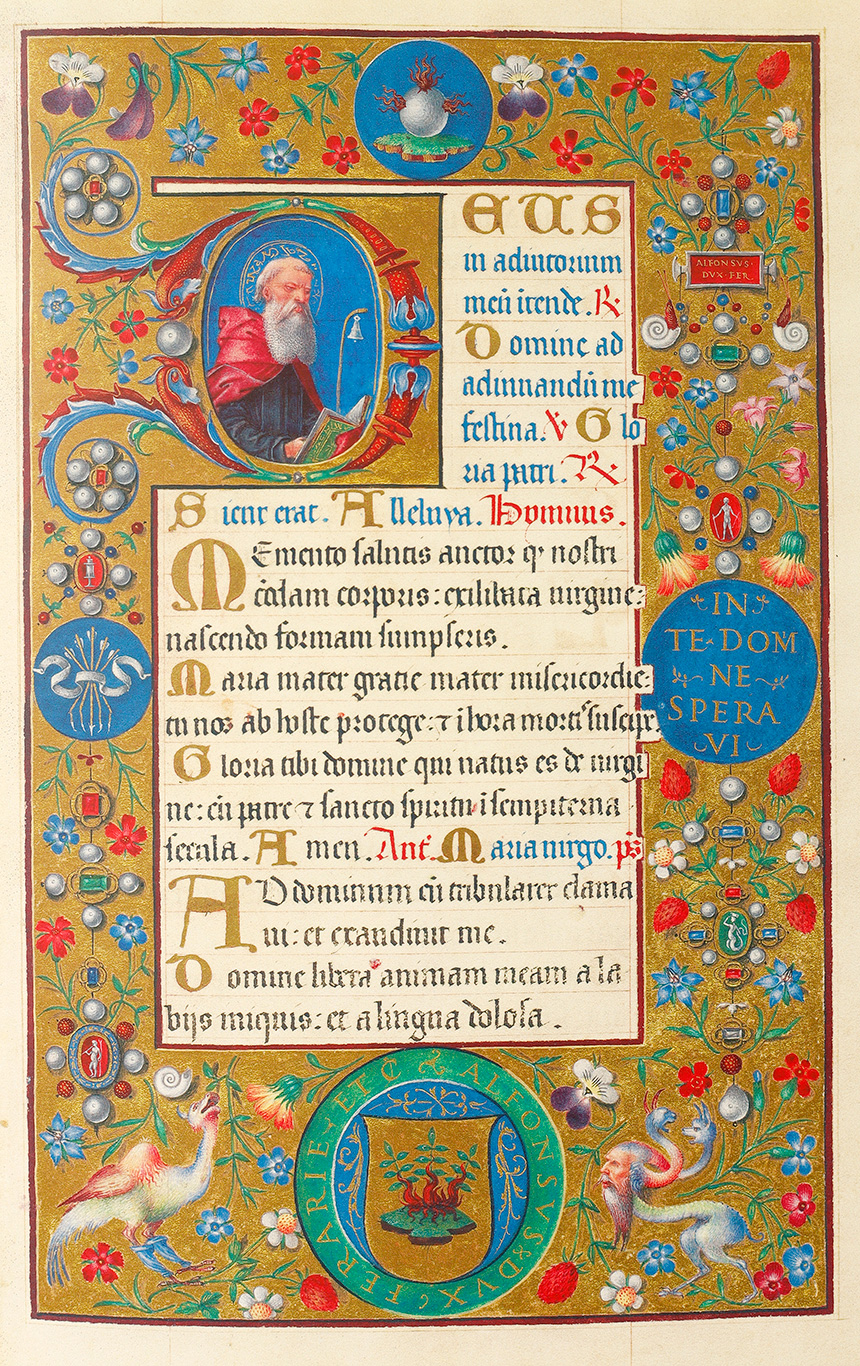 DEUS
in adiutorium
meū ītende. R.
Domine ad
adiuuandū me
festina. V Glo
ria patri. R.
ALFONSVS·
DVX·FER·
Sicut erat. Alleluya. Hymnus.
MEmento salutis auctor q' nostri
corporis: ex illibata uirgine:
nascendo formam sumpseris.
Maria mater gratie mater misericordie:
tu nos ab hoste protege: ⁊ ī hora mortis suscipe.
Gloria tibi domine qui natus es de uirgi
ne: cū patre ⁊ sancto spiritu ī sempiterna
secula. Amen. Ant. Maria uirgo. ps
AD dominum cū tribularer clama
ui: et exaudiuit me.
Domine libera animam meam a la
bijs iniquis: et a lingua dolosa.
IN
TE·DOM
NE
SPERA
VI
ALFONSVS DVX FERARIE·ETC